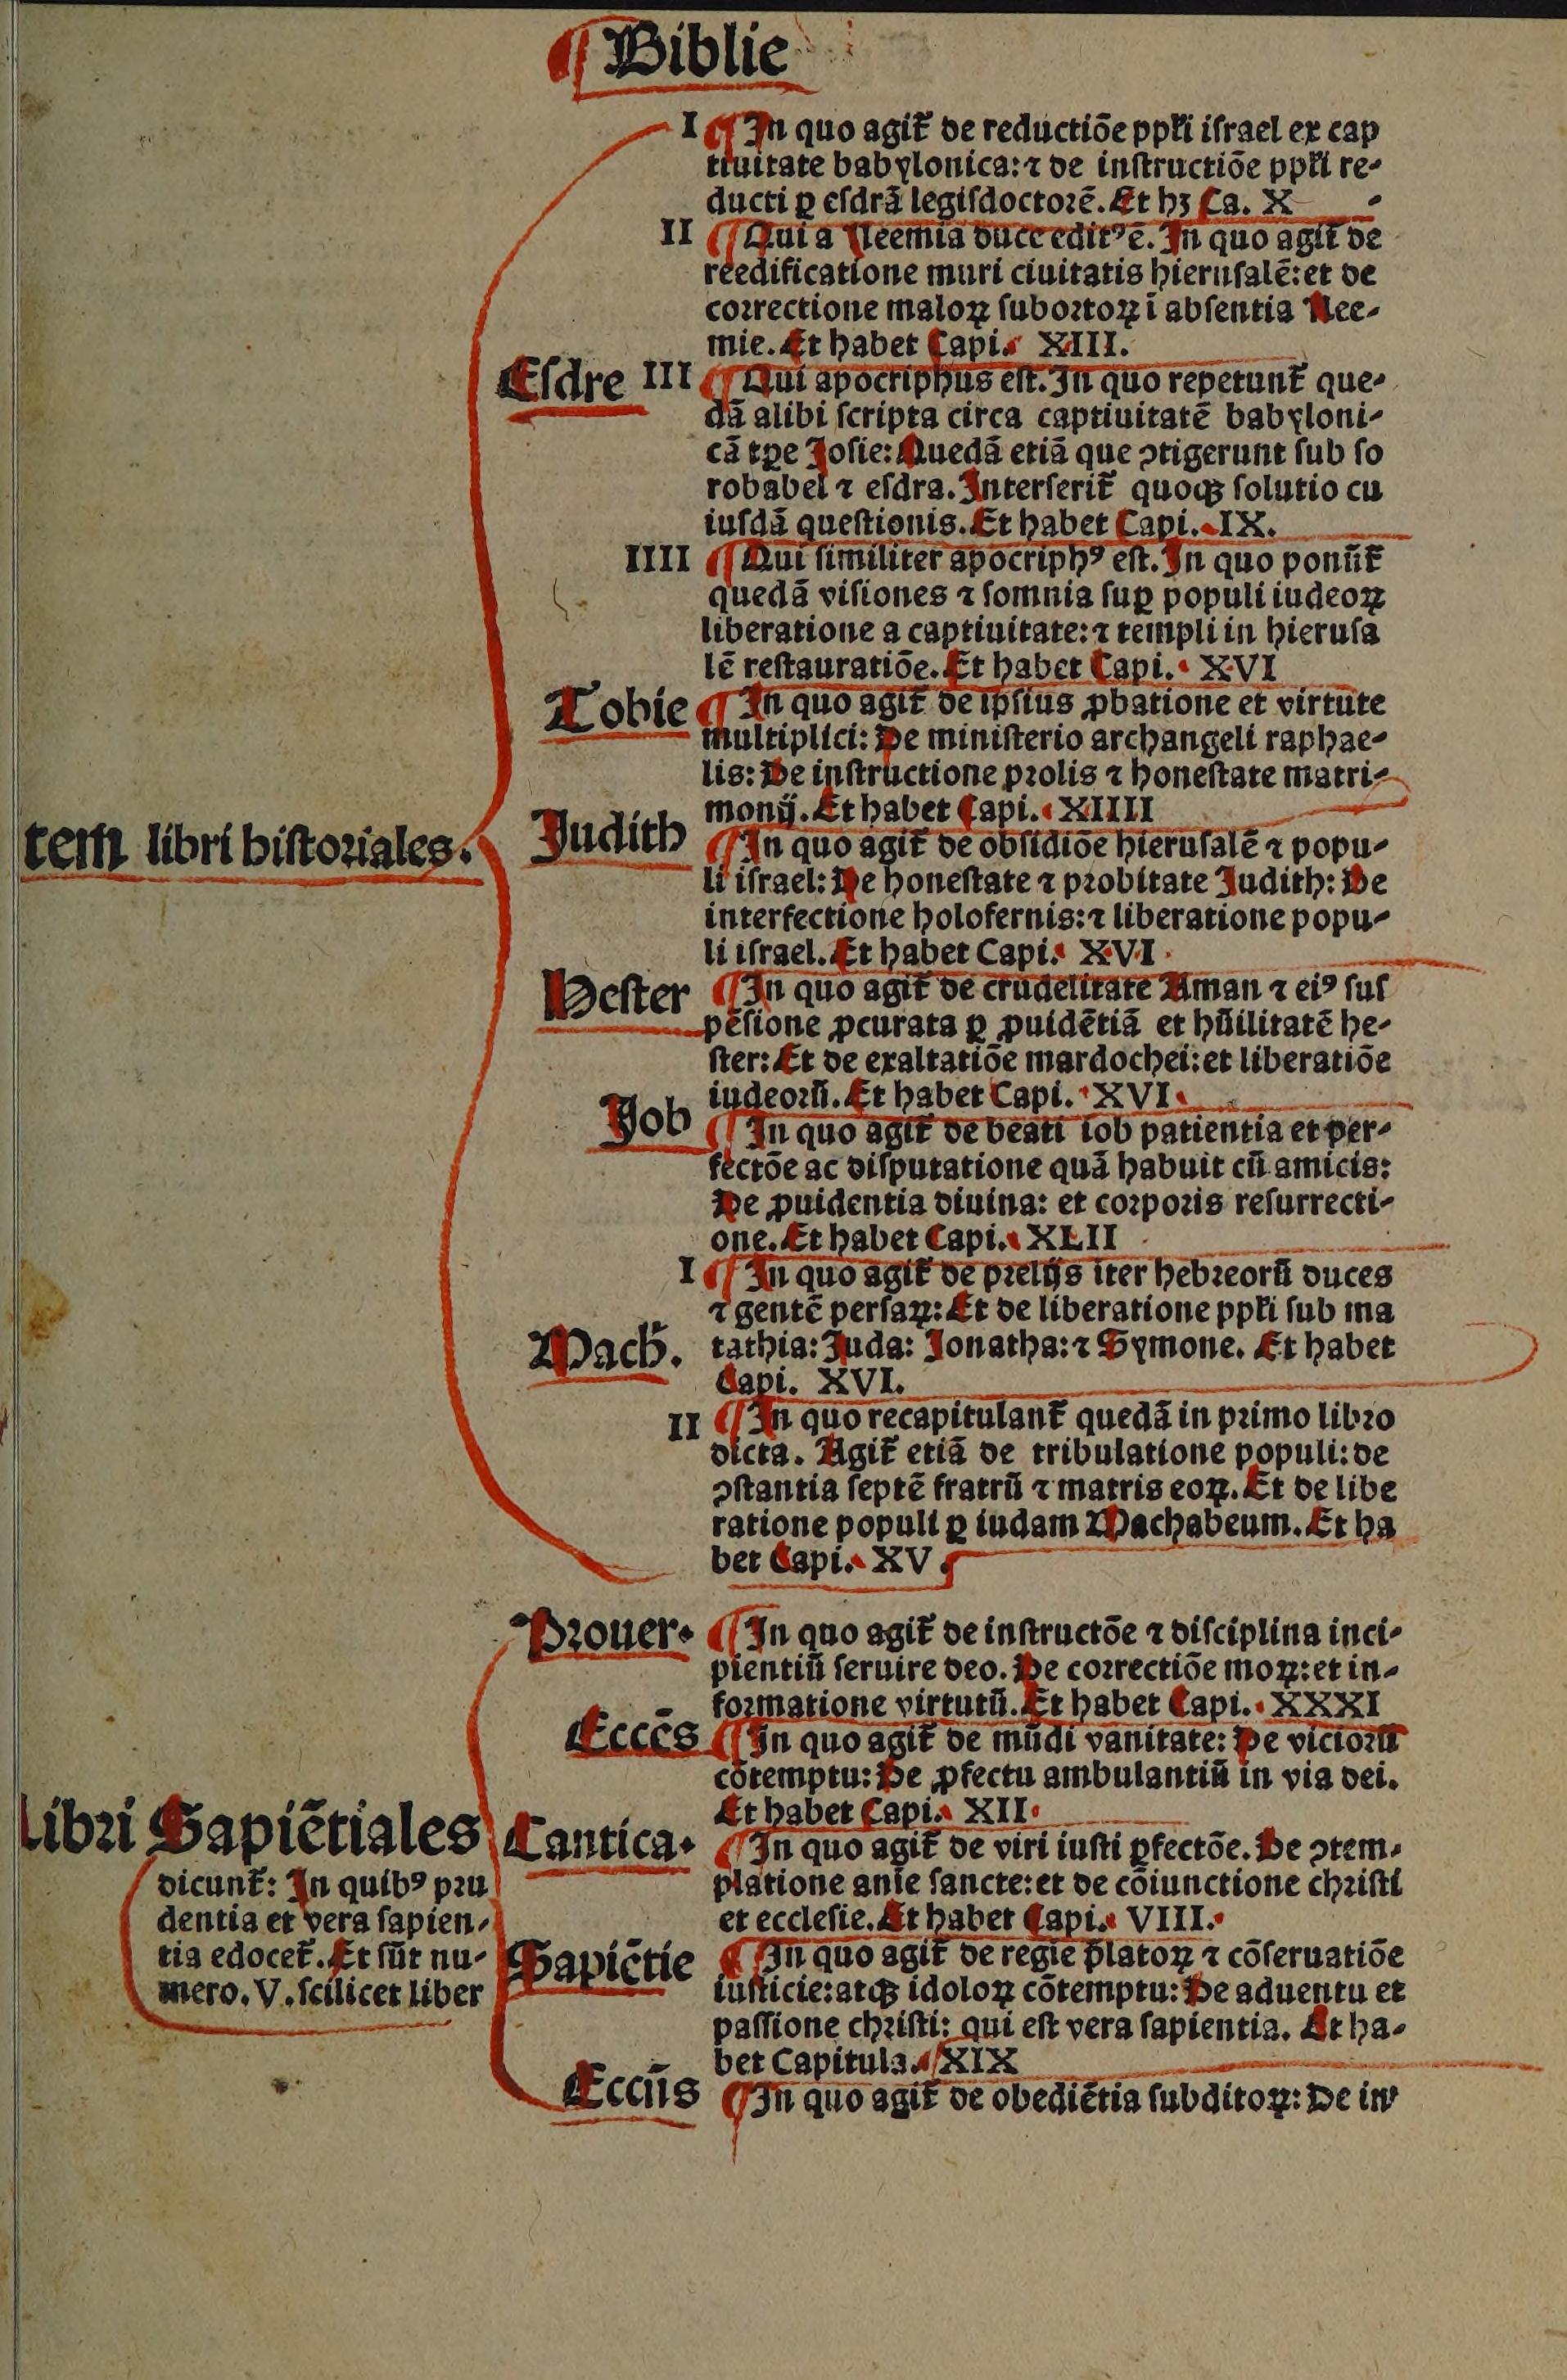 ¶ Biblie
I ¶ In quo agit᷑ de reductiõe ppłi iſrael ex cap
tiuitate babylonica: ⁊ de inſtructiõe ppłi re-
ducti ꝑ eſdrã legiſdoctorẽ. Et hꝫ Ca. X
II ¶ Qui a Neemia duce editꝰ ẽ. In quo agit᷑ de
reedificatione muri ciuitatis hieruſalẽ: et de
correctione maloꝝ ſubortoꝝ ĩ abſentia Nee-
mie. Et habet Capi. XIII.
Eſdre III ¶ Qui apocriphus eſt. In quo repetunt᷑ que-
dã alibi ſcripta circa captiuitatẽ babyloni-
cã tꝑe Joſie: Quedã etiã que ꝯtigerunt ſub ſo
robabel ⁊ eſdra. Interſerit᷑ quoqꝫ ſolutio cu
iuſdã queſtionis. Et habet Capi. IX.
IIII ¶ Qui ſimiliter apocriphꝰ eſt. In quo ponũt᷑
quedã viſiones ⁊ ſomnia ſuꝑ populi iudeoꝝ
liberatione a captiuitate: ⁊ templi in hieruſa
lẽ reſtauratiõe. Et habet Capi. XVI
Tobie ¶ In quo agit᷑ de ipſius ꝓbatione et virtute
multiplici: De miniſterio archangeli raphae-
lis: De inſtructione prolis ⁊ honeſtate matri-
monij. Et habet Capi. XIIII
tem̃ libri hiſtoriales.
Judith ¶ In quo agit᷑ de obſidiõe hieruſalẽ ⁊ popu-
li iſrael: De honeſtate ⁊ probitate Judith: De
interfectione holofernis: ⁊ liberatione popu-
li iſrael. Et habet Capi. XVI
Heſter ¶ In quo agit᷑ de crudelitate Aman ⁊ eiꝰ ſuſ
pẽſione ꝓcurata ꝑ ꝓuidẽtiã et hũilitatẽ he-
ſter: Et de exaltatiõe mardochei: et liberatiõe
iudeorũ. Et habet Capi. XVI
Job ¶ In quo agit᷑ de beati iob patientia et per-
fectõe ac diſputatione quã habuit cũ amicis:
De ꝓuidentia diuina: et corporis reſurrecti-
one. Et habet Capi. XLII
I ¶ In quo agit᷑ de prelijs ĩter hebreorũ duces
⁊ gentẽ perſaꝝ: Et de liberatione ppłi ſub ma
Mach̃. tathia: Juda: Jonatha: ⁊ Symone. Et habet
Capi. XVI.
II ¶ In quo recapitulant᷑ quedã in primo libro
dicta. Agit᷑ etiã de tribulatione populi: de
ꝯſtantia ſeptẽ fratrũ ⁊ matris eoꝝ. Et de libe
ratione populi ꝑ iudam Machabeum. Et ha
bet Capi. XV.
Prouer. ¶ In quo agit᷑ de inſtructõe ⁊ diſciplina inci-
pientiũ ſeruire deo. De correctiõe moꝝ: et in-
formatione virtutũ. Et habet Capi. XXXI
Eccẽs ¶ In quo agit᷑ de mũdi vanitate: De viciorũ
cõtemptu: De ꝓfectu ambulantiũ in via dei.
Et habet Capi. XII
Libri Sapiẽtiales
dicunt᷑: In quibꝰ pru
dentia et vera ſapien-
tia edocet᷑. Et ſũt nu-
mero. V. ſcilicet liber
Cantica. ¶ In quo agit᷑ de viri iuſti ꝑfectõe. De ꝯtem-
platione anĩe ſancte: et de cõiunctione chriſti
et eccleſie. Et habet Capi. VIII.
Sapiẽtie ¶ In quo agit᷑ de regĩe p̃latoꝝ ⁊ cõſeruatiõe
iuſticie: atqꝫ idoloꝝ cõtemptu: De aduentu et
paſſione chriſti: qui eſt vera ſapientia. Et ha-
bet Capitula. XIX
Eccĩis ¶ In quo agit᷑ de obediẽtia ſubditoꝝ: De in